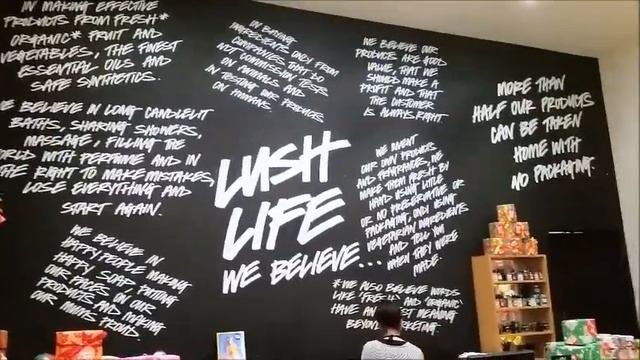 IN MAKING EFFECTIVE
PRODUCTS FROM FRESH*
ORGANIC* FRUIT AND
VEGETABLES, THE FINEST
ESSENTIAL OILS AND
SAFE SYNTHETICS.
IN BUYING
INGREDIENTS ONLY FROM
COMPANIES THAT DO
NOT COMMISSION TESTS
ON ANIMALS AND
IN TESTING OUR PRODUCTS
ON HUMANS.
WE BELIEVE OUR
PRODUCTS ARE GOOD
VALUE, THAT WE
SHOULD MAKE A
PROFIT AND THAT
THE CUSTOMER
IS ALWAYS RIGHT
MORE THAN
HALF OUR PRODUCTS
CAN BE TAKEN
HOME WITH
NO PACKAGING.
E BELIEVE IN LONG CANDLELIT
BATHS, SHARING SHOWERS,
MASSAGE, FILLING THE
ORLD WITH PERFUME AND IN
THE RIGHT TO MAKE MISTAKES,
LOSE EVERYTHING AND
START AGAIN.
LUSH
LIFE
WE BELIEVE...
WE INVENT
OUR OWN PRODUCTS
AND FRAGRANCES, WE
MAKE THEM FRESH BY
HAND USING LITTLE
OR NO PRESERVATIVE OR
PACKAGING, ONLY USING
VEGETARIAN INGREDIENTS
AND TELL YOU
WHEN THEY WERE
MADE.
WE BELIEVE IN
HAPPY PEOPLE MAKING
HAPPY SOAP, PUTTING
OUR FACES ON OUR
PRODUCTS AND MAKING
OUR MUMS PROUD.
*WE ALSO BELIEVE WORDS
LIKE 'FRESH' AND 'ORGANIC'
HAVE AN ST MEANING
BEYOND RKETING.